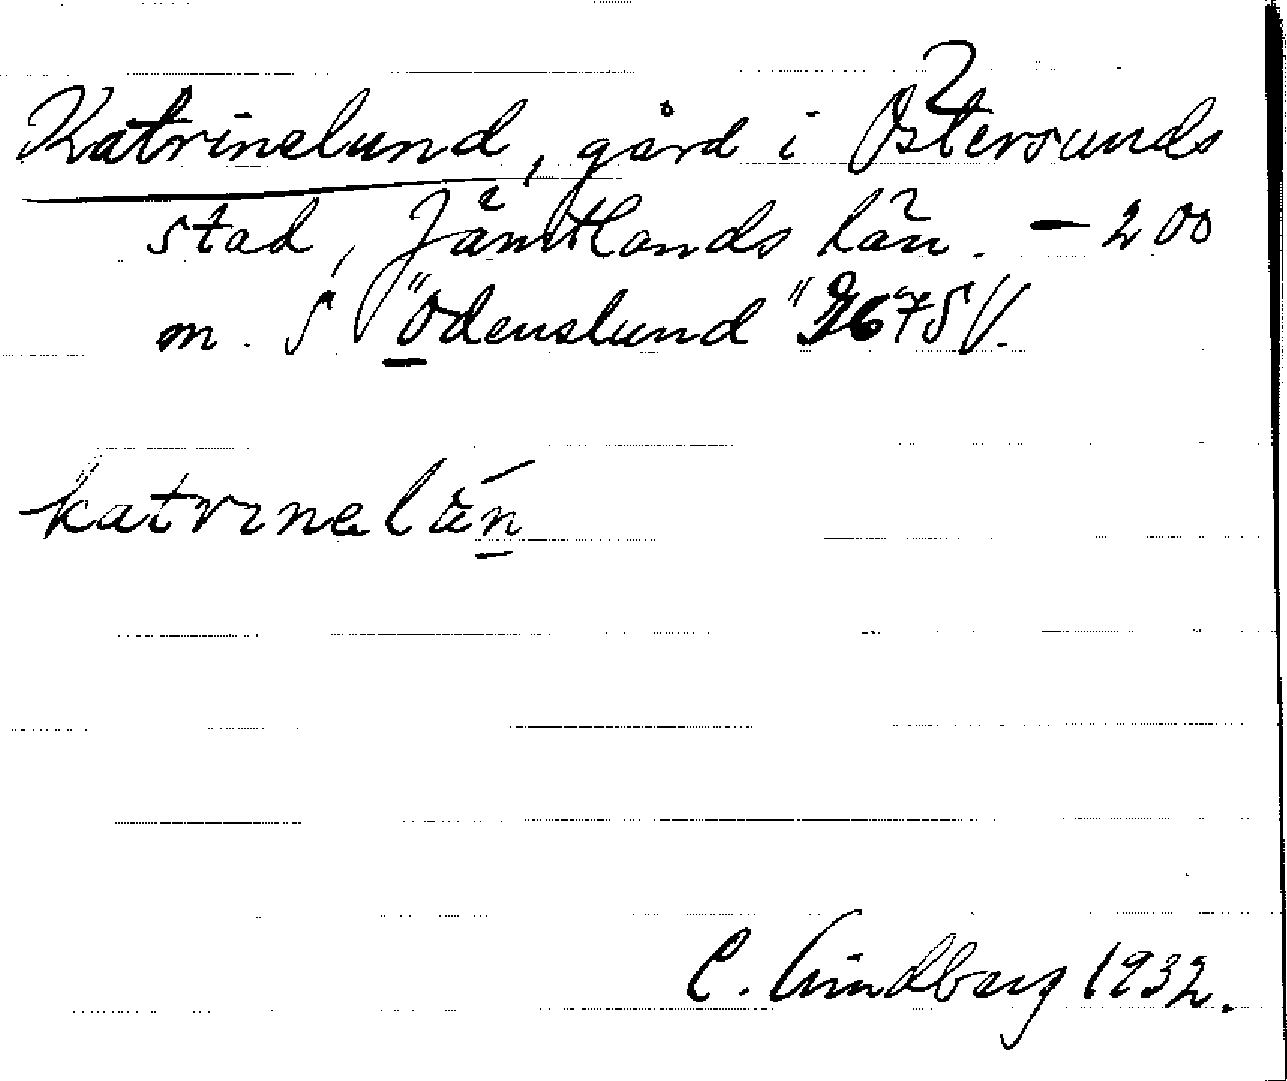 Katrinelund, gård i Östersunds
stad, Jämtlands län. — 200
m. S "Odenslund" 2675V.
katrinelän
C. Lindberg 1932.